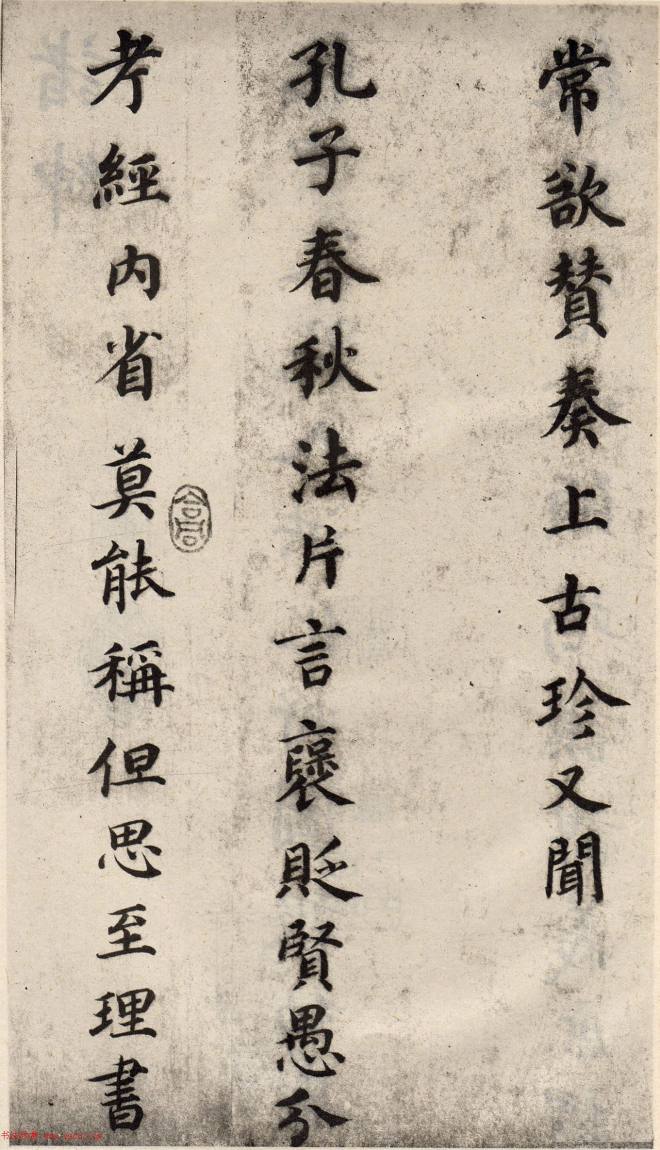 常欲賛奏上古珍又聞
孔子春秋法片言襃貶賢愚分
考經内省莫能稱但思至理書